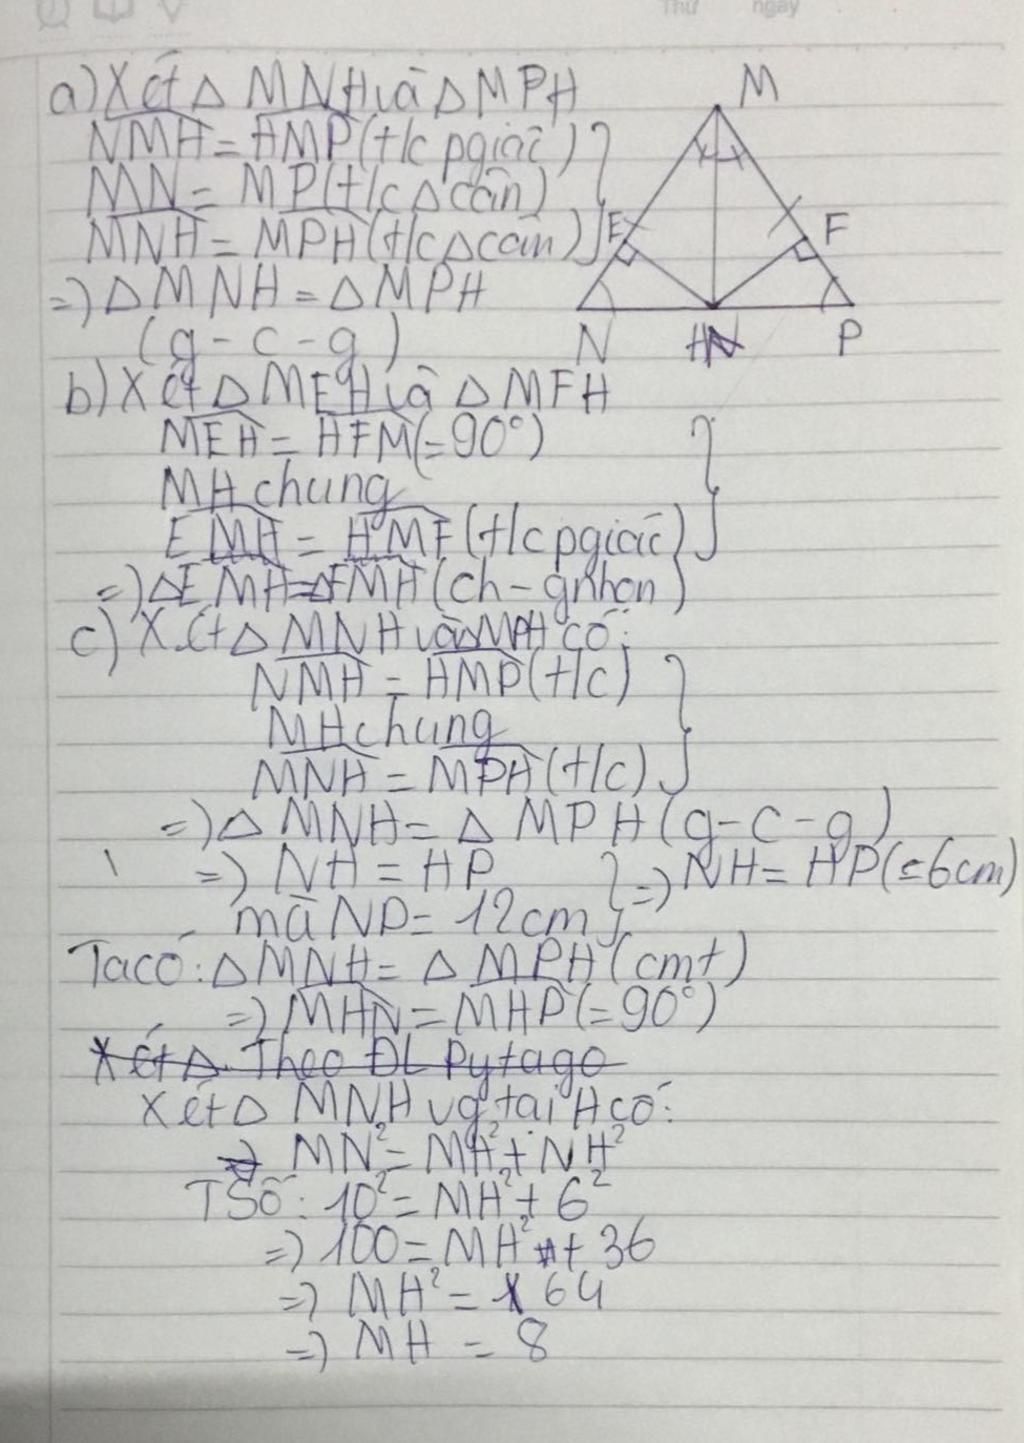 Thứ ngày
a) Xét △ MNH và △ MPH
NMH = HMP (t/c pgiác)
MN = MP (t/c △ cân)
MNH = MPH (t/c △ cân)
=) △ MNH = △ MPH
(g - c - g)
M
E
F
N
H
P
b) Xét △ MEH và △ MFH
MEH = HFM (= 90°)
MH chung
EMH = HMF (t/c pgiác)
=) △EMH = △FMH (ch - gnhọn)
c) Xét △ MNH và △ MPH có:
NMH = HMP (t/c)
MH chung
MNH = MPH (t/c)
=) △ MNH = △ MPH (g - c - g)
=) NH = HP
mà NP = 12cm
=) NH = HP (= 6cm)
Ta có: △ MNH = △ MPH (cmt)
=) MHN = MHP (= 90°)
Xét △ Theo ĐL Pytago
Xét △ MNH vg tại H có:
=) MN² = MH² + NH²
TSố: 10² = MH² + 6²
=) 100 = MH² + 36
=) MH² = 64
=) MH = 8